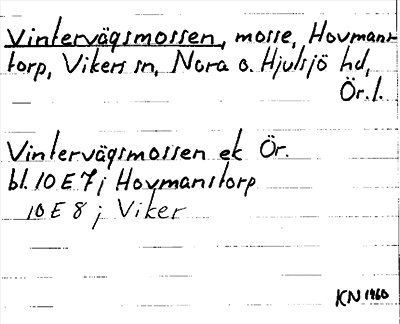 Vintervägsmossen, mosse, Hovmans-
torp, Vikers sn, Nora o. Hjulsjö hd,
Ör. l.
Vintervägsmossen ek Ör.
bl. 10 E 7 j Hovmanstorp
10 E 8 j Viker
KN 1960